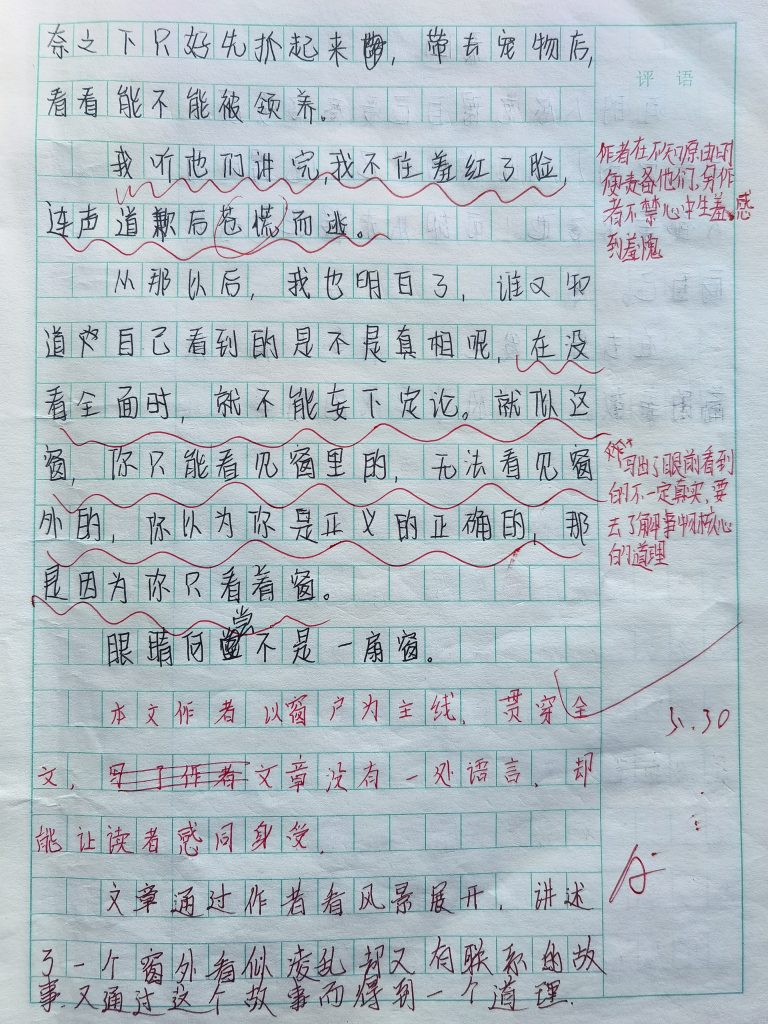 奈之下只好先抓起来，带去宠物店，
评 语
看看能不能被领养。
我听他们讲完，我不住羞红了脸，
连声道歉后苍慌而逃。
作者在不知原由时
便责备他们，另作
者不禁心中生羞，感
到羞愧
从那以后，我也明白了，谁又知
道自己看到的是不是真相呢，在没
看全面时，就不能妄下定论。就似这
窗，你只能看见窗里的，无法看见窗
外的，你以为你是正义的正确的，那
是因为你只看着窗。
写出了眼前看到
的不一定真实，要
去了解事物核心
的道理
眼睛何尝不是一扇窗。
本文作者以窗户为主线，贯穿全
文，写了作者文章没有一处语言，却
能让读者感同身受。
5.30
A-
文章通过作者看风景展开，讲述
了一个窗外看似凌乱却又有联系的故
事，又通过这个故事而得到一个道理.